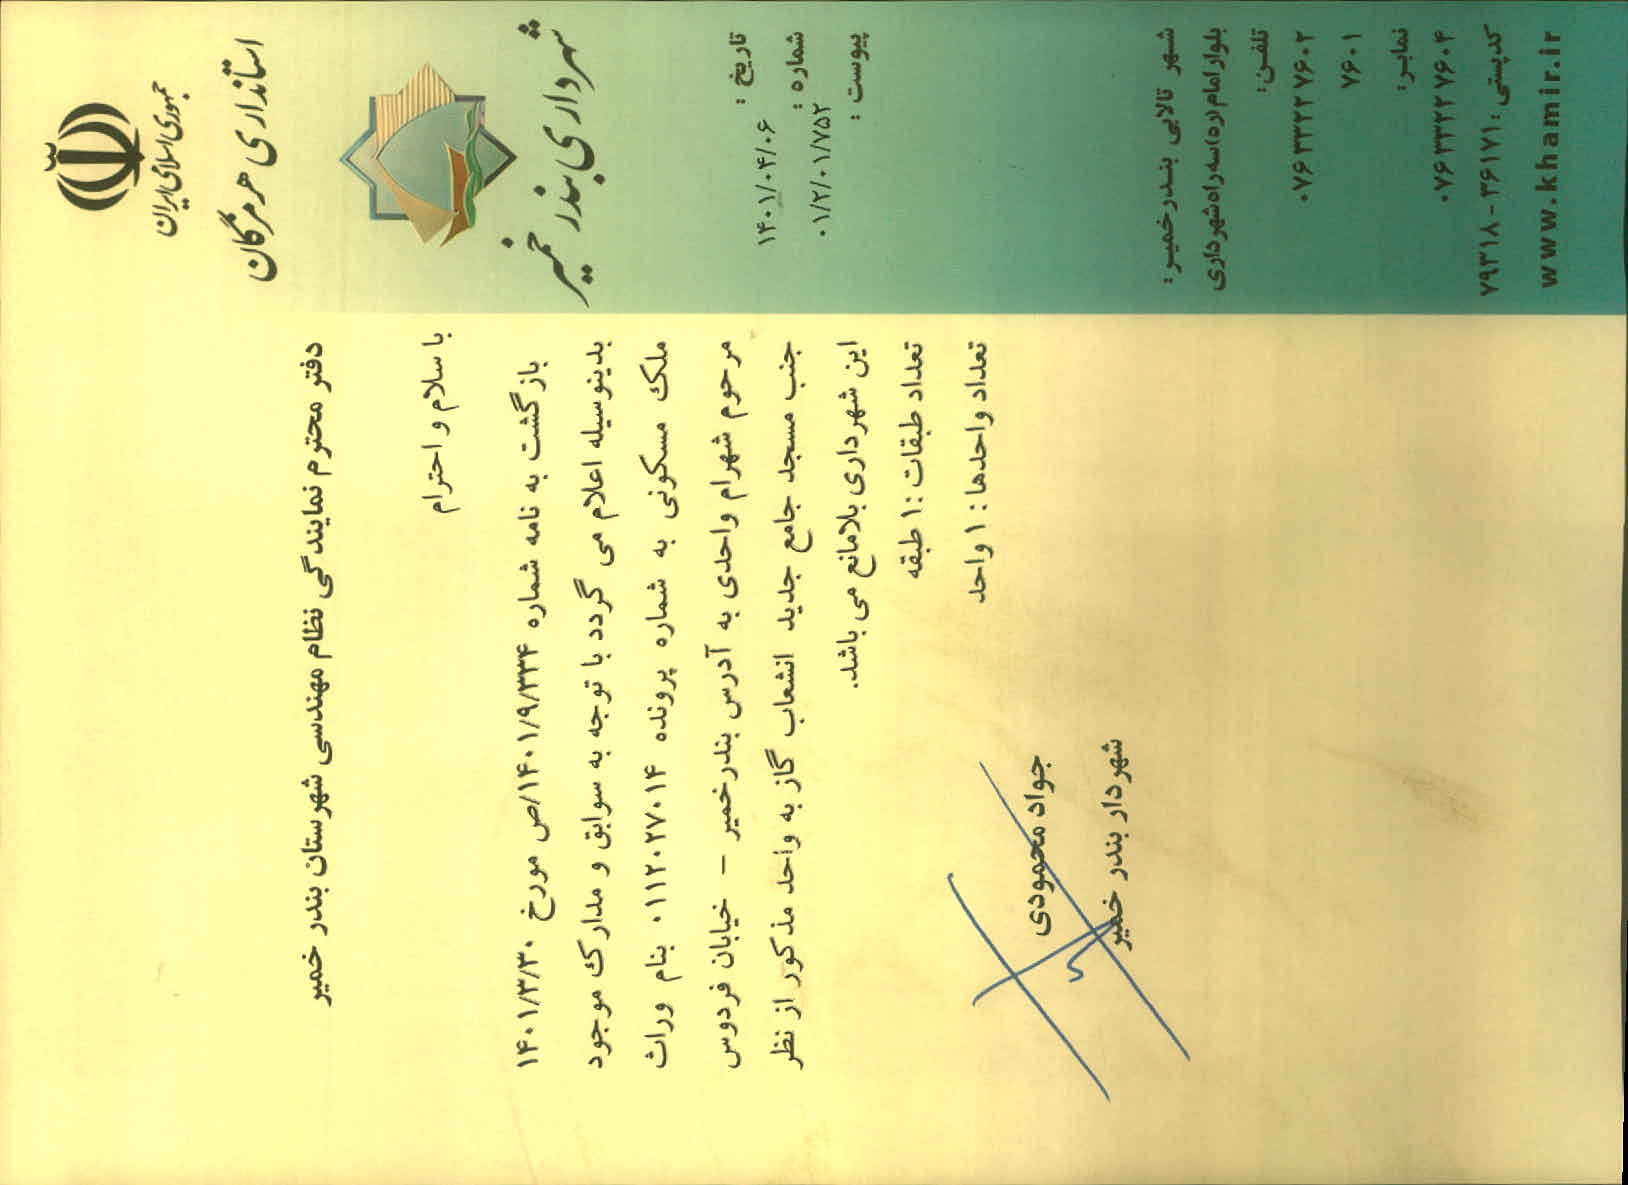 جمهوری اسلامی ایران
استانداری هرمزگان
شهرداری بندر خمیر
تاریخ : ۱۴۰۱/۰۴/۰۶
شماره : ۰۱/۲/۰۱/۷۵۲
پیوست :
دفتر محترم نمایندگی نظام مهندسی شهرستان بندر خمیر
با سلام و احترام
بازگشت به نامه شماره ۱۴۰۱/۹/۳۳۴/ص مورخ ۱۴۰۱/۳/۳۰
بدینوسیله اعلام می گردد با توجه به سوابق و مدارک موجود
ملک مسکونی به شماره پرونده ۰۱۱۲۰۲۷۰۱۴ بنام وراث
مرحوم شهرام واحدی به آدرس بندرخمیر - خیابان فردوس
جنب مسجد جامع جدید انشعاب گاز به واحد مذکور از نظر
این شهرداری بلامانع می باشد.
تعداد طبقات : ۱ طبقه
تعداد واحدها : ۱ واحد
جواد محمودی
شهردار بندر خمیر
شهر تالابی بندرخمیر :
بلوار امام (ره) سه راه شهرداری
تلفن:
۰۷۶۳۳۲۲۷۶۰۲
۷۶۰۱
نمابر:
۰۷۶۳۳۲۲۷۶۰۴
کدپستی : ۳۶۱۷۱ - ۷۹۳۱۸
www.khamir.ir